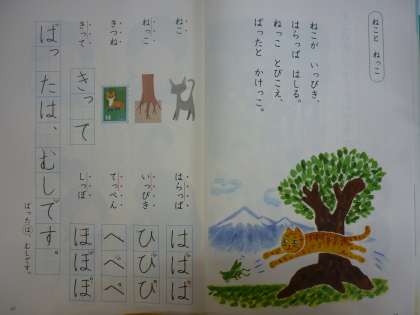 ねこと ねっこ
ねこが いっぴき、
はらっぱ はしる。
ねっこ とびこえ、
ばったと かけっこ。
ねこ
ねっこ
きつね
きって
きって
はらっぱ
いっぴき
てっぺん
しっぽ
はばぱ
ひびぴ
へべぺ
ほぼぽ
ばったは、むしです。
ばったは、むしです。